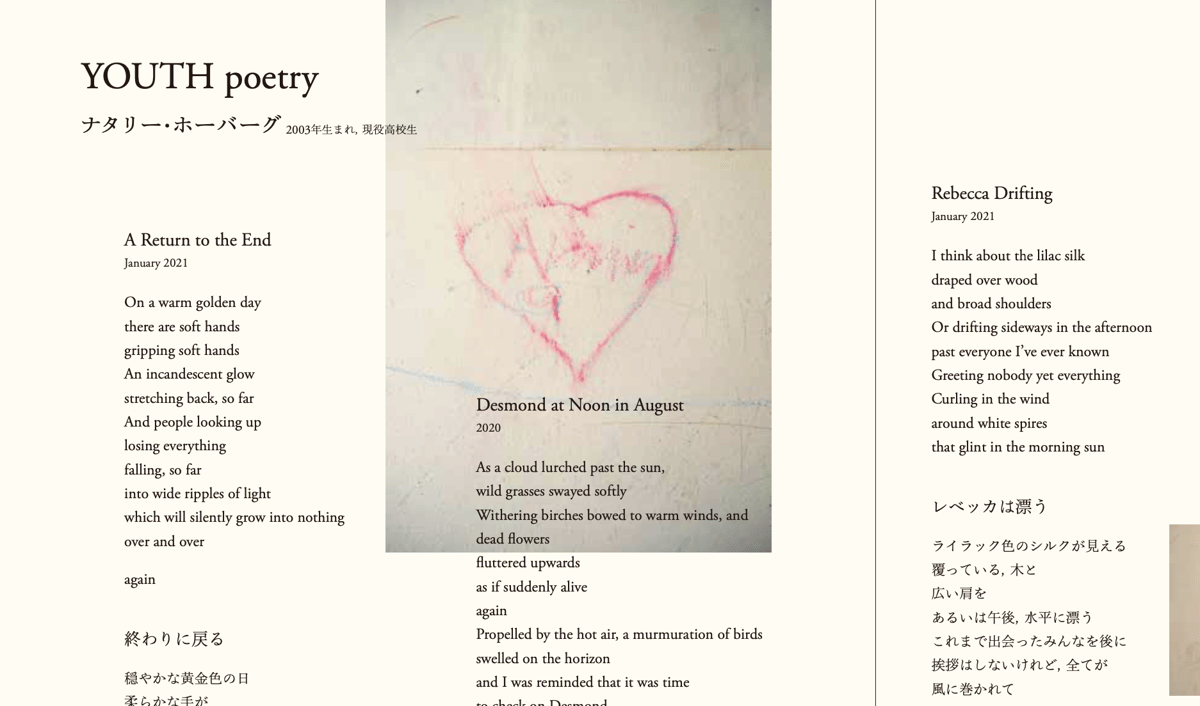 YOUTH poetry
ナタリー・ホーバーグ 2003年生まれ, 現役高校生
A Return to the End
January 2021
On a warm golden day
there are soft hands
gripping soft hands
An incandescent glow
stretching back, so far
And people looking up
losing everything
falling, so far
into wide ripples of light
which will silently grow into nothing
over and over
again
終わりに戻る
穏やかな黄金色の日
柔らかな手が
Desmond at Noon in August
2020
As a cloud lurched past the sun,
wild grasses swayed softly
Withering birches bowed to warm winds, and
dead flowers
fluttered upwards
as if suddenly alive
again
Propelled by the hot air, a murmuration of birds
swelled on the horizon
and I was reminded that it was time
to check on Desmond
Rebecca Drifting
January 2021
I think about the lilac silk
draped over wood
and broad shoulders
Or drifting sideways in the afternoon
past everyone I've ever known
Greeting nobody yet everything
Curling in the wind
around white spires
that glint in the morning sun
レベッカは漂う
ライラック色のシルクが見える
覆っている, 木と
広い肩を
あるいは午後, 水平に漂う
これまで出会ったみんなを後に
挨拶はしないけれど, 全てが
風に巻かれて